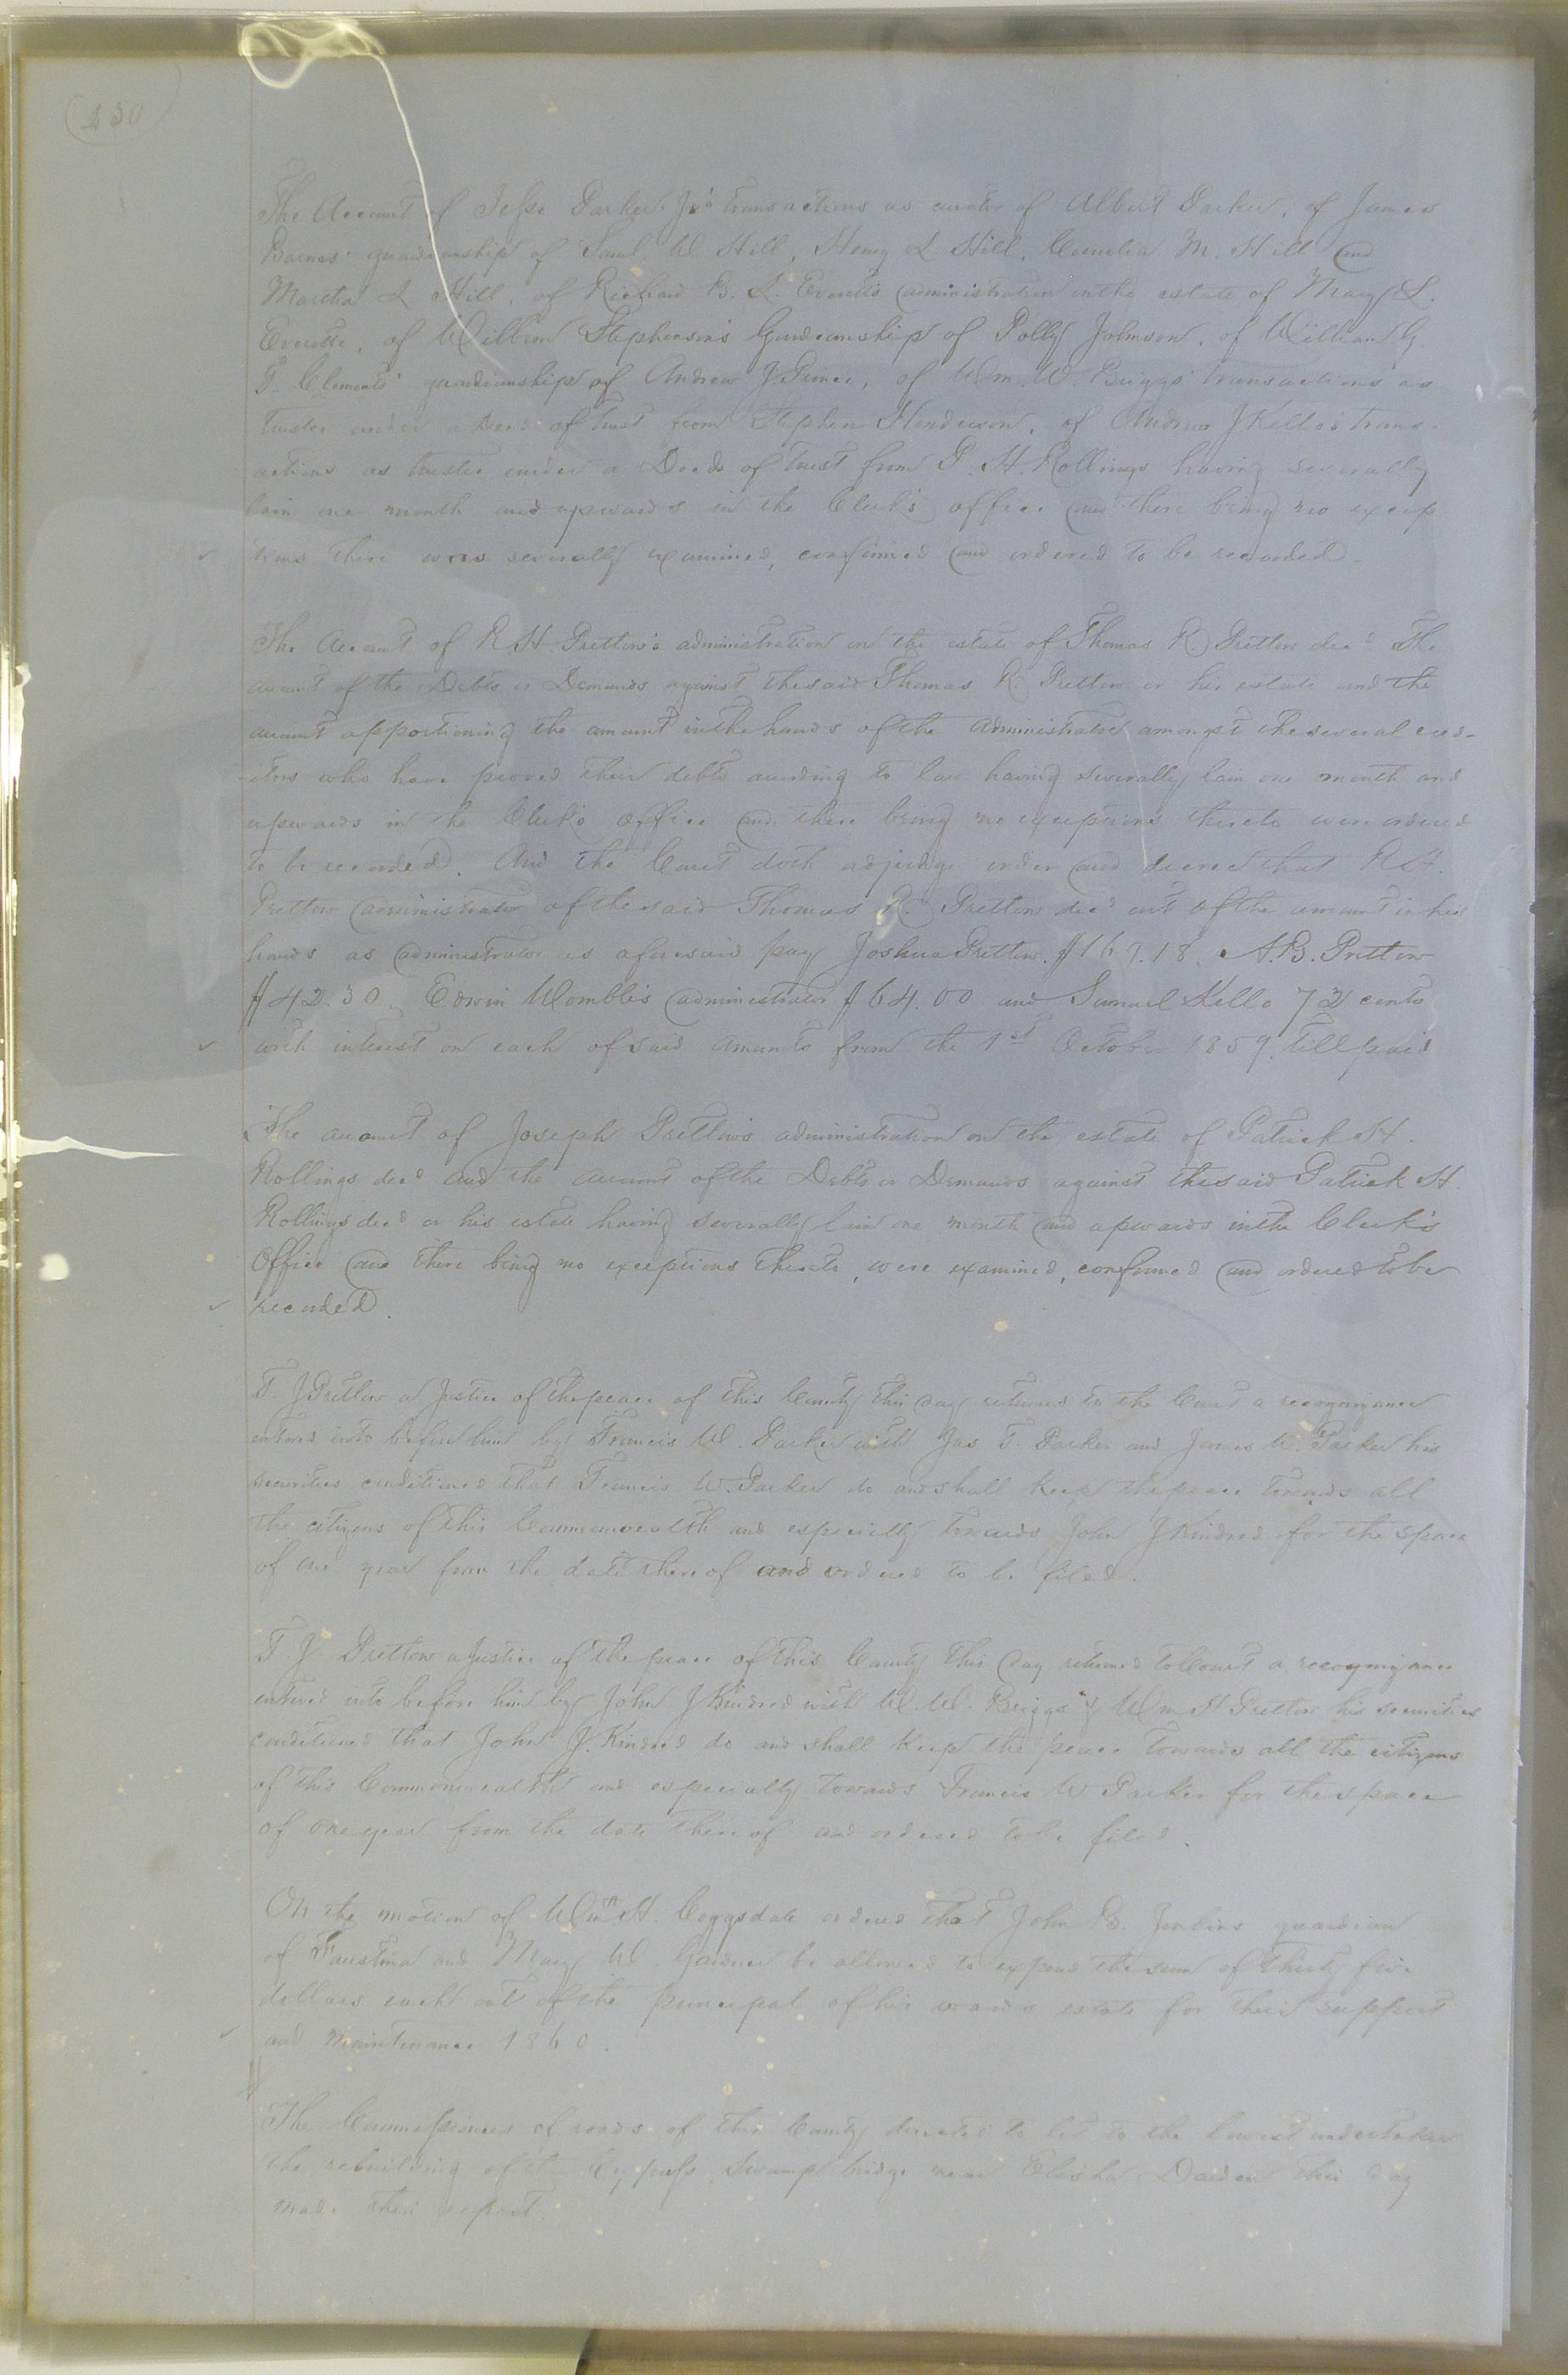 230
The Account of Jesse Parker Jr's transactions as curator of Albert Parker, of James
Barnes' guardianship of Saml. W Hill, Henry L Hill, Cornelia M. Hill and
Martha L Hill, of Richard B. L. Everett's administration on the estate of Mary L.
Everette, of William Stephenson's Guardianship of Polly Johnson, of William G.
T. Clements' guardianship of Andrew J Prince, of Wm. W. Briggs' transactions as
Trustee under a Deed of Trust from Stephen Henderson, of Andrew J Kello's trans-
actions as trustee under a Deed of trust from P. H. Rollings having severally
lain one month and upwards in the Clerk's office and there being no excep
tions there was severally examined, confirmed and ordered to be recorded
The Account of R H Pretlow's administration on the estate of Thomas R. Pretlow decd The
account of the Debts or Demands against the said Thomas R. Pretlow or his estate and the
account apportioning the amount in the hands of the administrator amongst the several cred-
itors who have proved their debts according to law having severally lain one month and
upwards in the Clerk's Office and there being no exceptions thereto were ordered
to be recorded. And the Court doth adjudge order and decree that R H.
Pretlow administrator of the said Thomas R. Pretlow decd out of the amount in his
hands as administrator as aforesaid pay Joshua Pretlow $167.18. A. B. Pretlow
$42.30. Edwin Womble's administrator $64.00 and Samuel Kello 72 cents
with interest on each of said amounts from the 1st October 1859. till paid
The account of Joseph Pretlow's administration on the estate of Patrick H.
Rollings decd and the account of the Debts or Demands against the said Patrick H.
Rollings decd or his estate having severally lain one month and upwards in the Clerk's
Office and there being no exceptions thereto, were examined, confirmed and ordered to be
recorded.
T. J Pretlow a Justice of the peace of this County this day returned to the Court a recognizance
entered into before him by Francis W. Parker with Jas T. Parker and James W. Parker his
securities conditioned that Francis W. Parker do and shall keep the peace towards all
the citizens of this Commonwealth and especially towards John J Kindred for the space
of one year from the date thereof and ordered to be filed.
T. J Pretlow a Justice of the peace of this County this day returned to Court a recognizance
entered into before him by John J Kindred with W. W. Briggs & Wm H Pretlow his securities
conditioned that John J. Kindred do and shall keep the peace towards all the citizens
of this Commonwealth and especially towards Francis W Parker for the space
of one year from the date thereof and ordered to be filed.
On the motion of Wm H. Coggsdale ordered that John B. Jenkins guardian
of Faustina and Mary W. Gardner be allowed to expend the sum of thirty five
dollars each out of the principal of his wards estate for their support
and maintenance 1860.
The Commissioners of roads of this County directed to let to the lowest undertaker
the rebuilding of the Cypress Swamp bridge near Elisha Darden this day
made their report.